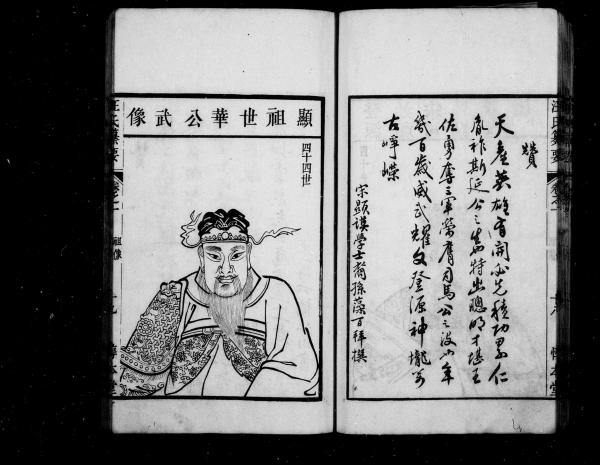 汪氏纂要
卷之一
贊
天產英雄有開必先積功累仁
胤祚斯延公之特出聰明才堪王
佐勇奪三軍榮膺司馬公之沒年
幾百歲威武耀文登源神壠萬
古崢嶸
宋顯謨學士裔孫藻百拜撰
顯祖世華公武像
四十四世
汪氏纂要
卷之一
祖像
十九
惇本堂